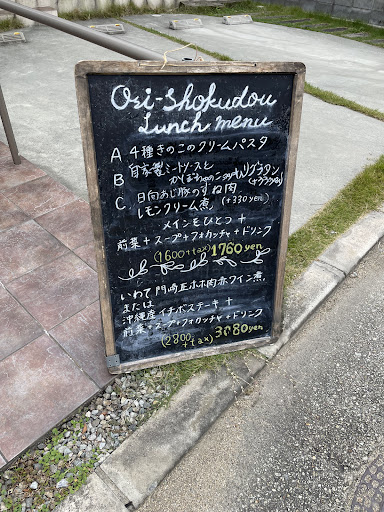 Ori-Shokudou
Lunch menu
A 4種きのこのクリームパスタ
B 自家製ミートソースと
かぼちゃの グラタン
C 日向あじ豚のすね肉
レモンクリーム煮 (+330yen)
メインをひとつ+
前菜+スープ+フォカッチャ+ドリンク
(1600+tax) 1760yen
いわて門崎丑ホホ肉赤ワイン煮
または
沖縄産イチボステーキ+
前菜+スープ+フォカッチャ+ドリンク
(2800+tax) 3080yen